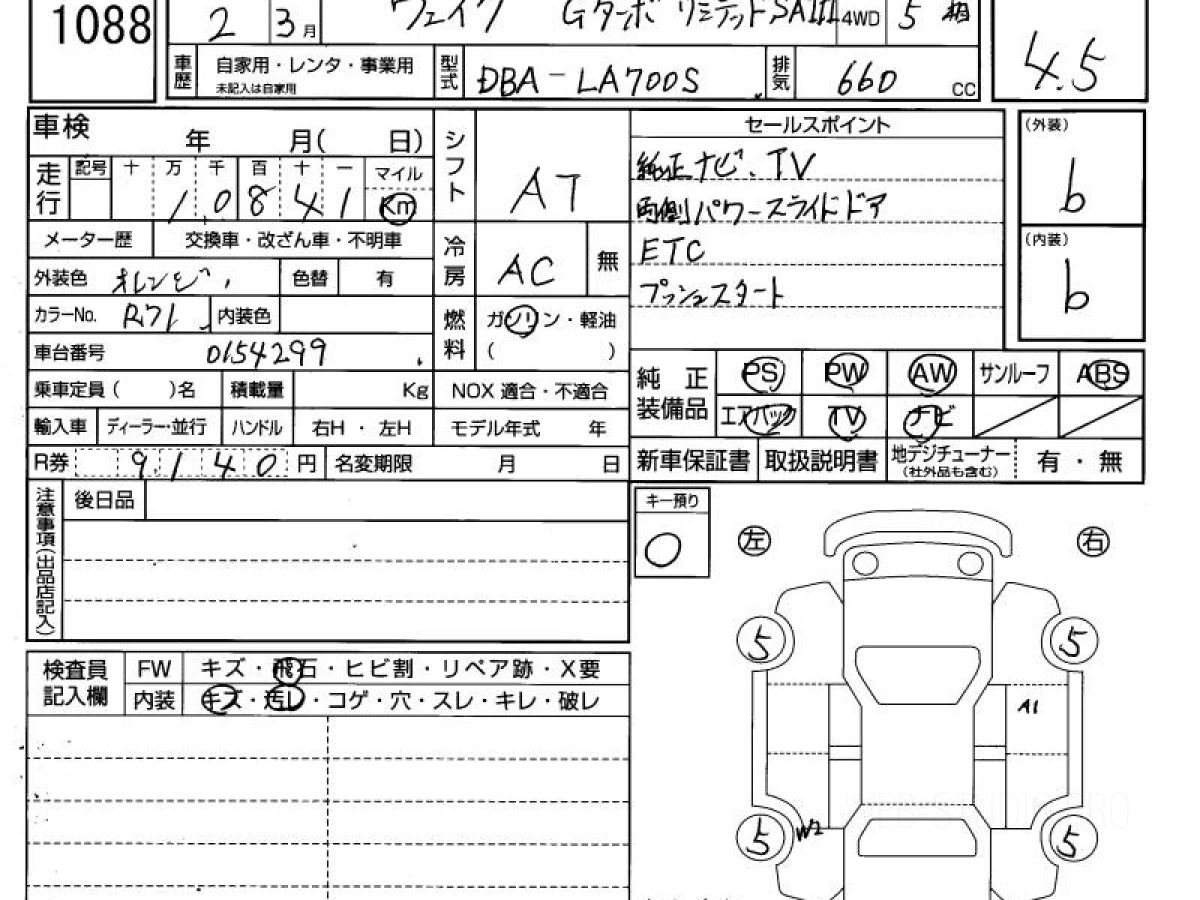 1088
2 3月 ウェイク Gターボ リミテッド SAIII 4WD 5
4.5
車歴 自家用・レンタ・事業用 未記入は自家用 型式 DBA-LA700S 排気 660 CC
車検 年 月( 日)
走行 記号 十 万 千 百 十 一 マイル
1 0 8 4 1 Km
シフト AT
メーター歴 交換車・改ざん車・不明車
外装色 オレンジ 色替 有
冷房 AC 無
カラーNo. R71 内装色
車台番号 0154299
燃料 ガソリン・軽油
( )
乗車定員( )名 積載量 Kg NOX 適合・不適合
輸入車 ディーラー・並行 ハンドル 右H・左H モデル年式 年
R券 9,140 円 名変期限 月 日
セールスポイント
純正ナビ、TV
両側パワースライドドア
ETC
プッシュスタート
(外装)
b
(内装)
b
純正装備品 PS PW AW サンルーフ ABS
エアバック TV ナビ
新車保証書 取扱説明書 地デジチューナー (社外品も含む) 有・無
注意事項(出品店記入) 後日品
キー預り
○
左 右
5 5
A1
5 W2 5
検査員記入欄 FW キズ・飛石・ヒビ割・リペア跡・X要
内装 キズ・汚レ・コゲ・穴・スレ・キレ・破レ